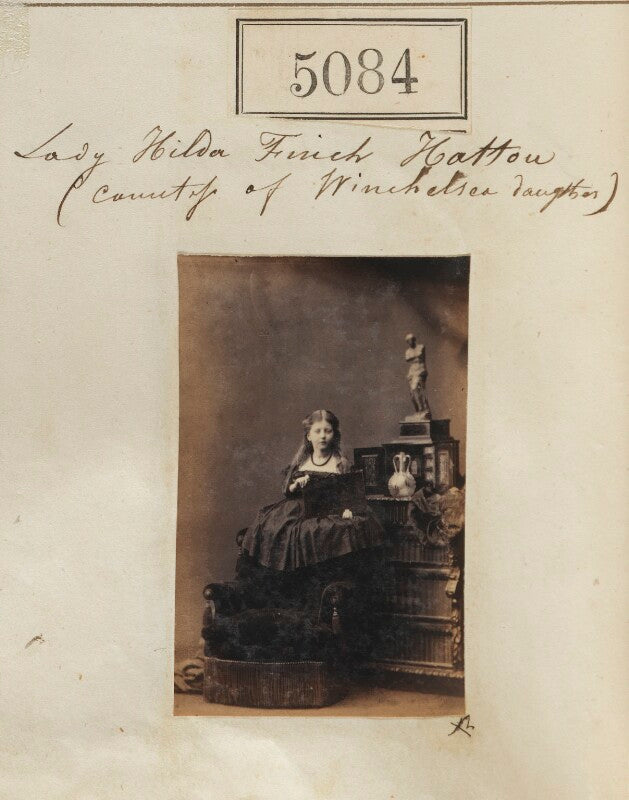 5084
Lady Hilda Finch Hatton
(countss of Winchelsea daughter)